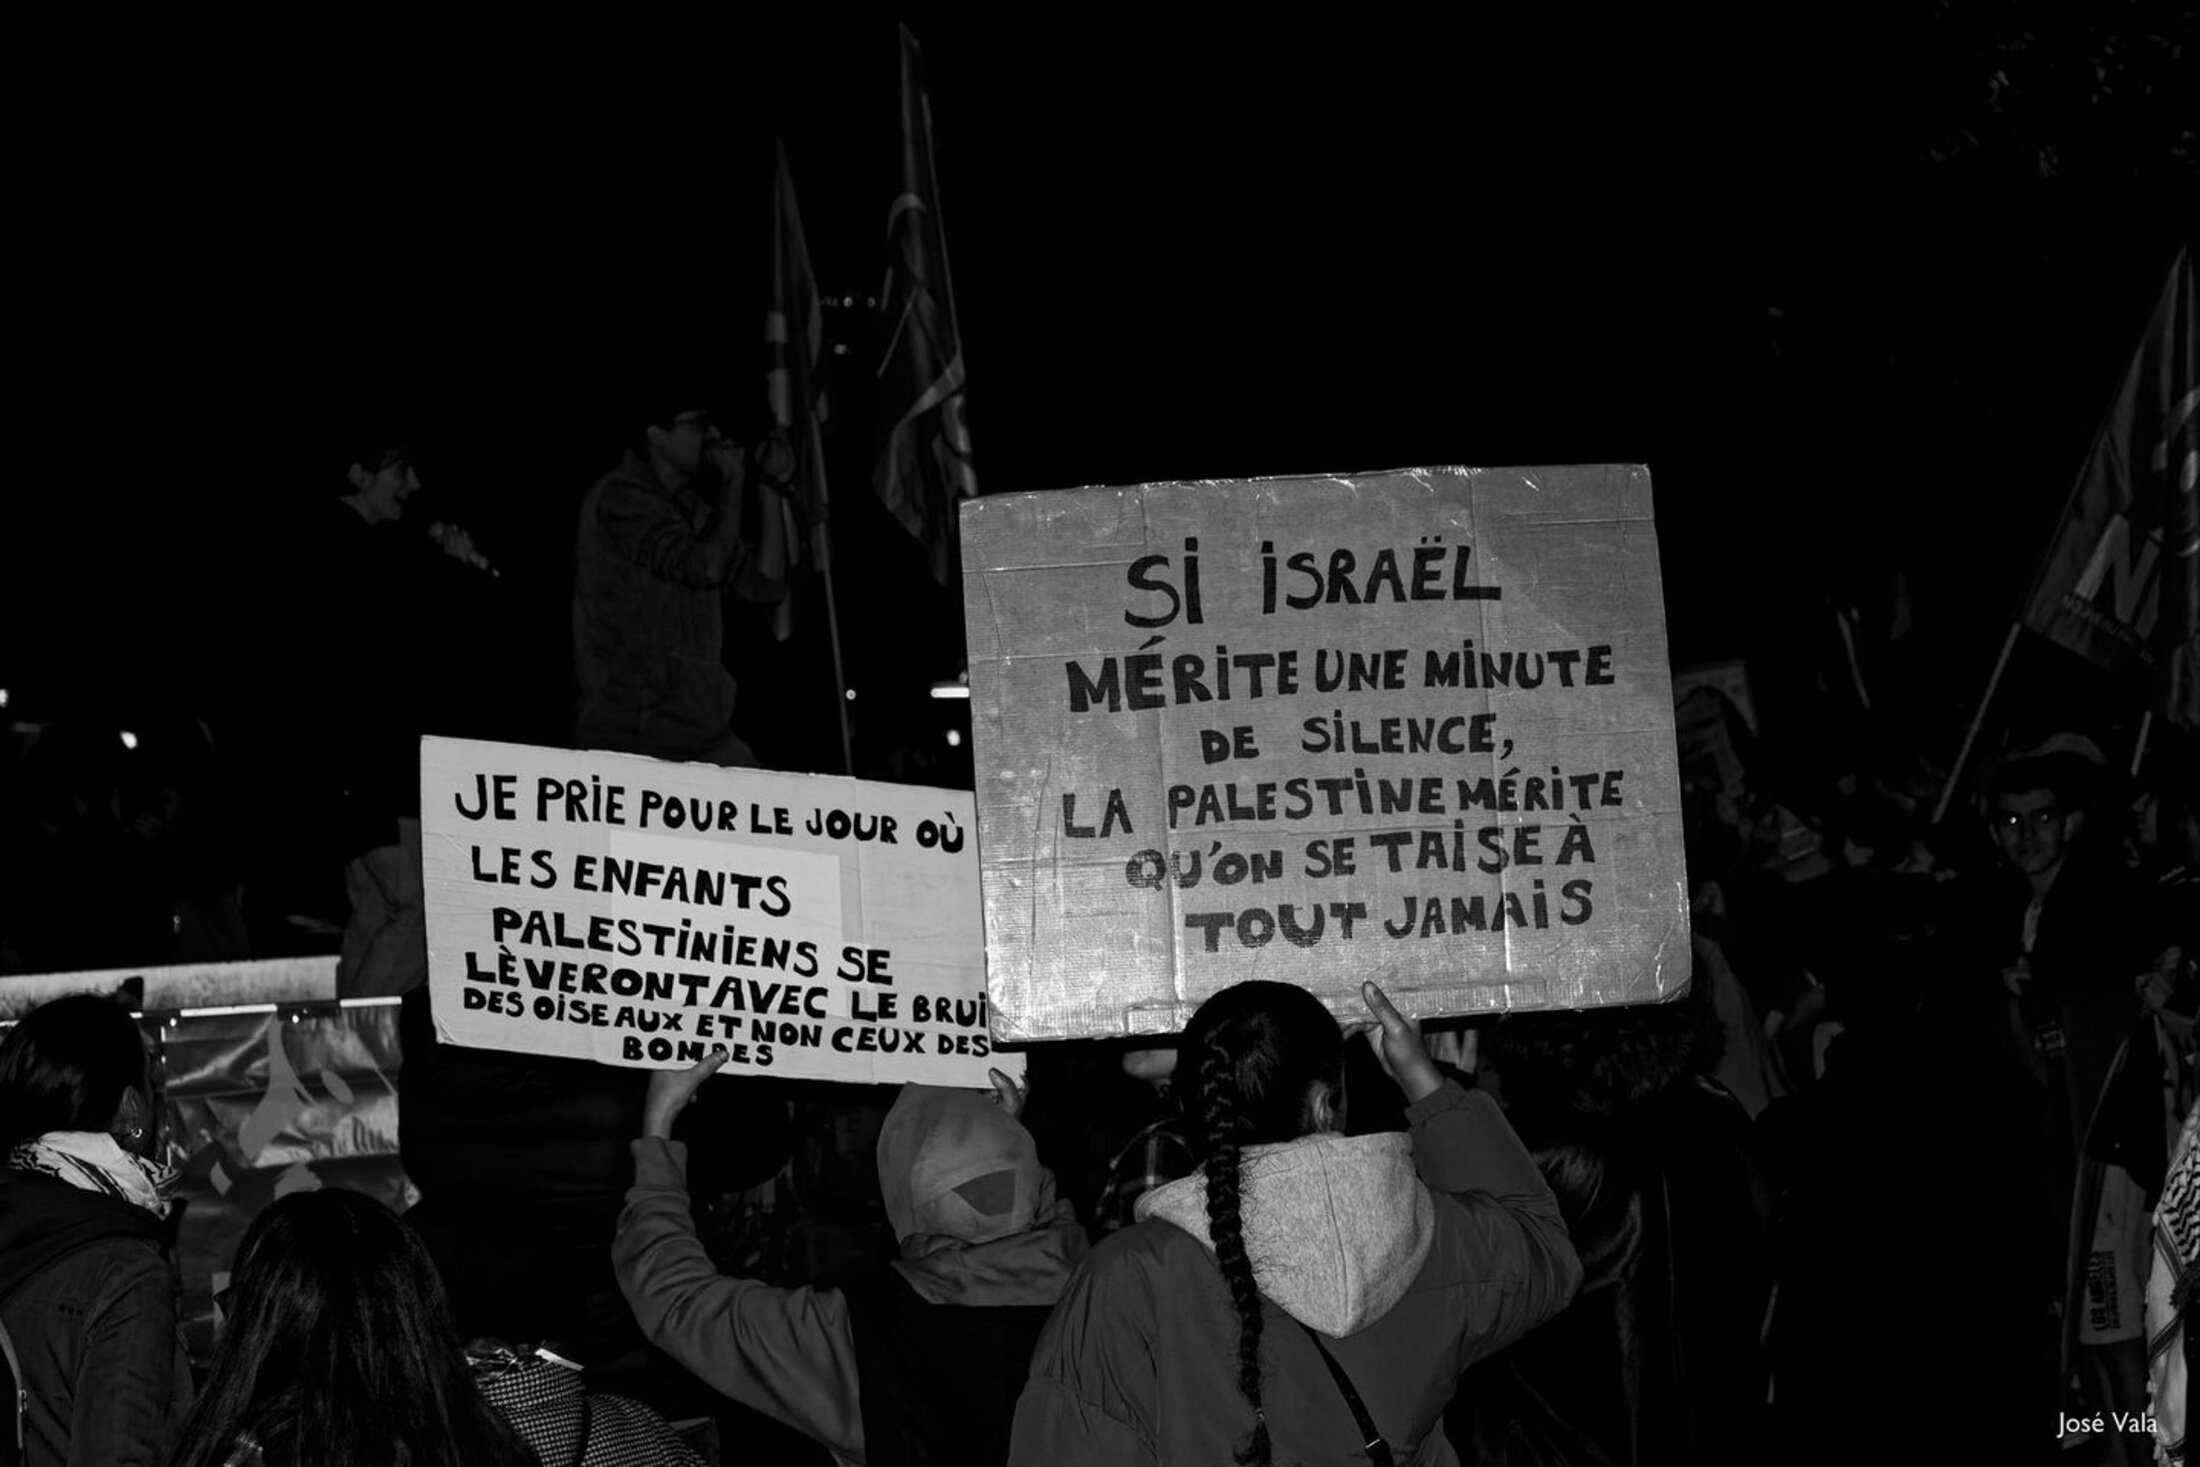 JE PRIE POUR LE JOUR OÙ
LES ENFANTS
PALESTINIENS SE
LÈVERONT AVEC LE BRUI
DES OISEAUX ET NON CEUX DES
BOMBES
SI ISRAËL
MÉRITE UNE MINUTE
DE SILENCE,
LA PALESTINE MÉRITE
QU'ON SE TAISE À
TOUT JAMAIS
LOS ANGELES
José Vala